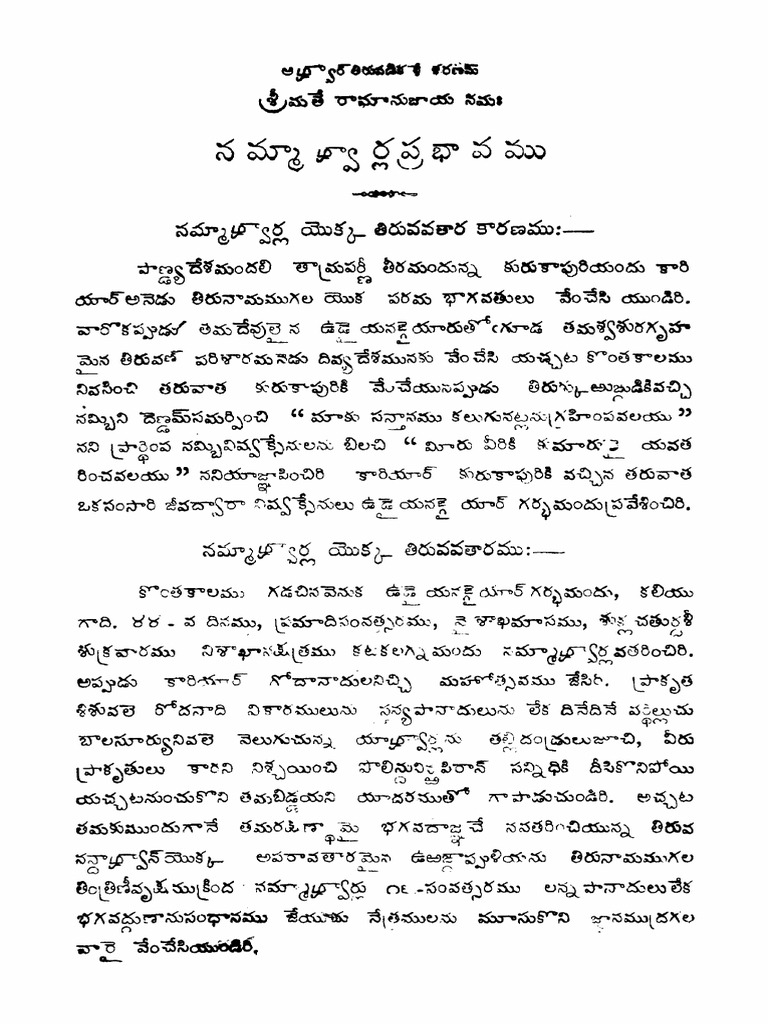 ఆழ్వార్ తిరువడికళే శరణమ్
శ్రీమతే రామానుజాయ నమః
నమ్మాళ్వార్ల ప్రభావము
నమ్మాళ్వార్ల యొక్క తిరువవతార కారణము:—
పాణ్డ్యదేశమందలి తామ్రపర్ణీ తీరమందున్న కురుకాపురియందు కారి
యార్ అనెడు తిరునామముగల యొక పరమ భాగవతులు వేంచేసి యుండిరి.
వారొకప్పుడు తమదేవులైన ఉడై యనఙ్గైయారుతోఁగూడ తమశ్వశురగృహ
మైన తిరువణ్ పరిశారమనెడు దివ్యదేశమునకు వేంచేసి యచ్చట కొంతకాలము
నివసించి తరువాత కురుకాపురికి వేంచేయునప్పుడు తిరుక్కుఱుఙ్గుడికివచ్చి
నమ్బిని దెణ్డమ్‌సమర్పించి “ మాకు సన్తానము కలుగునట్లనుగ్రహింపవలయు ”
నని ప్రార్థింప నమ్బివివ్వక్సేనులను బిలచి “ మీరు వీరికి కుమారులై యవత
రించవలయు ” ననియాజ్ఞాపించిరి కారియార్ కురుకాపురికి వచ్చిన తరువాత
ఒకసంసారి జీవద్వారా వివ్వక్సేనులు ఉడై యనఙ్గై యార్ గర్భమందుప్రవేశించిరి.
నమ్మాళ్వార్ల యొక్క తిరువవతారము:—
కొంతకాలము గడచినవెనుక ఉడై యనఙ్గైయార్ గర్భమందు, కలియు
గాది. ౪౪ - వ దినము, ప్రమాదిసంవత్సరము, వైశాఖమాసము, శుక్లచతుర్దశీ
శుక్రవారము విశాఖానక్షత్రము కటకలగ్నమందు నమ్మాళ్వార్లవతరించిరి.
అప్పుడు కారియార్ గోదానాదులనిచ్చి మహోత్సవము జేసిరి. ప్రాకృత
శిశువలె రోదనాది వికారములును స్తన్యపానాదులును లేక దినేదినే వర్థిల్లుచు
బాలసూర్యునివలె వెలుగుచున్న యాళ్వార్లను తల్లిదండ్రులుజూచి, వీరు
ప్రాకృతులు కారని నిశ్చయించి పొలిన్దునిన్ఱపిరాన్ సన్నిధికి దీసికొనిపోయి
యచ్చటనుంచుకొని తమబిడ్డయని యాదరముతో గాపాడుచుండిరి. అచ్చట
తమకుముందుగానే తమరక్షణార్థమై భగవదాజ్ఞచే నవతరించియున్న తిరువ
నన్దాళ్వాన్‌యొక్క అపరావతారమైన ఉఱఙ్గాప్పుళియను తిరునామముగల
తింత్రిణీవృక్షముక్రింద నమ్మాళ్వార్లు ౧౬-సంవత్సరము లన్నపానాదులులేక
భగవద్గుణానుసంధానము జేయుచు నేత్రములను మూసుకొని జ్ఞానముద్రగల
వారై వేంచేసియుండిరి.